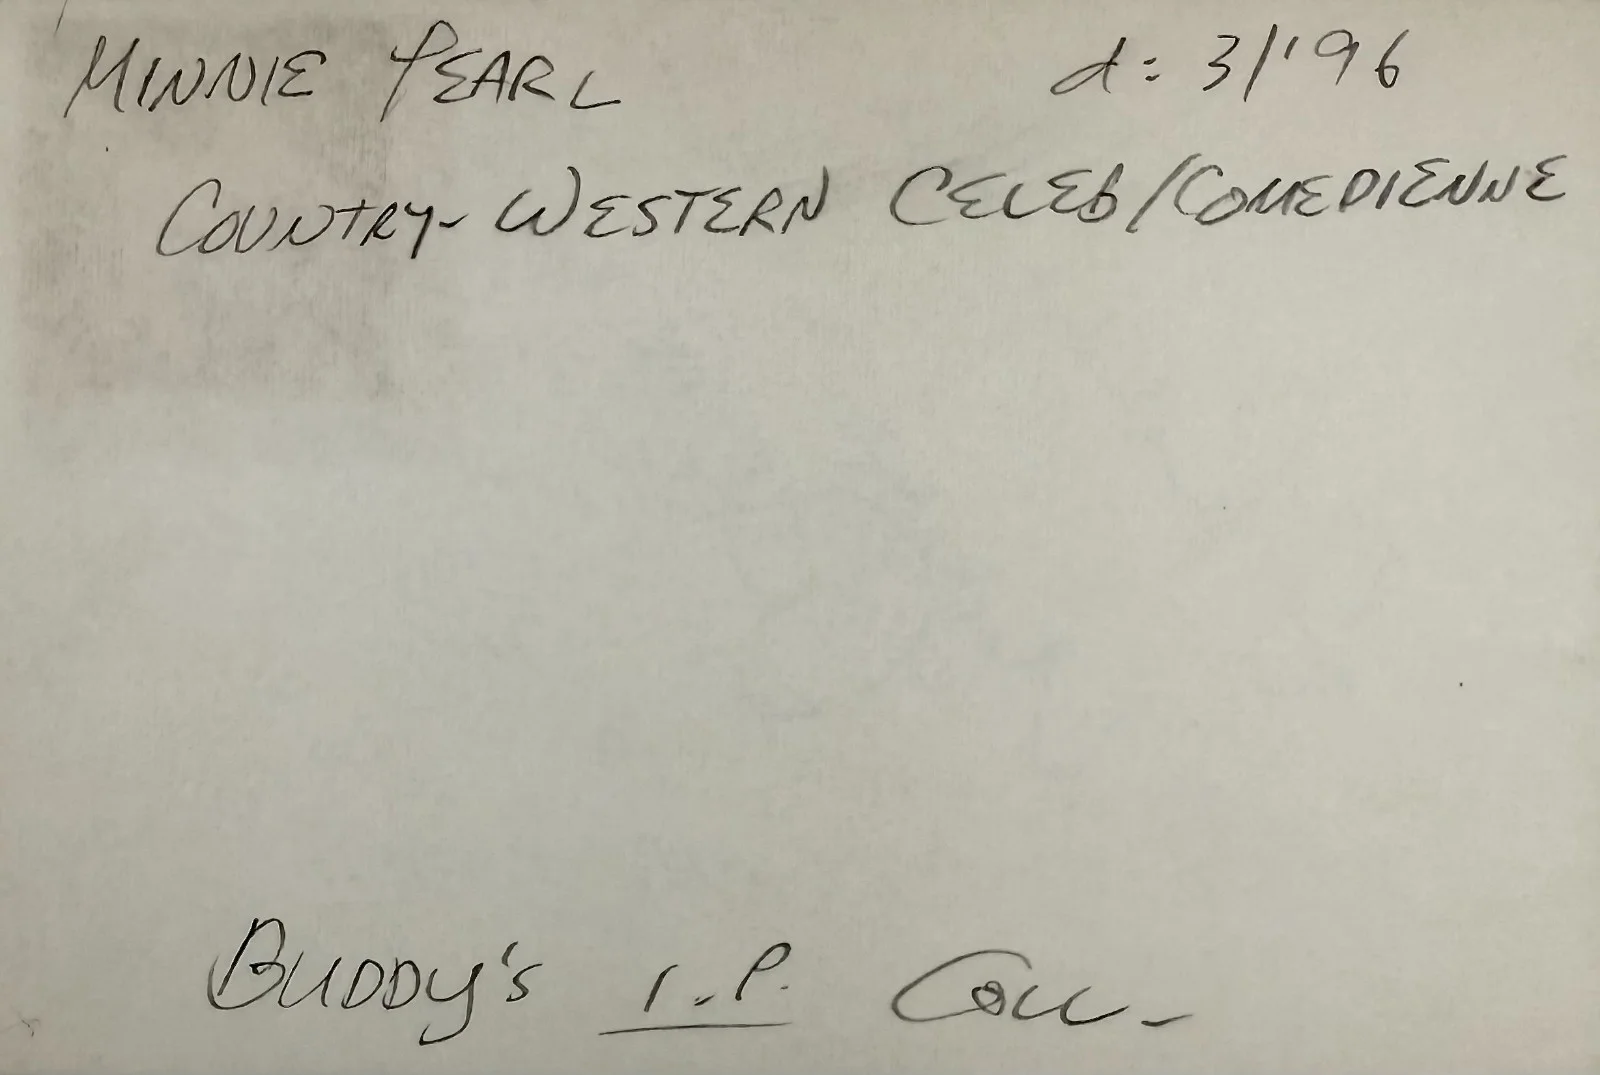 MINNIE PEARL d: 3/'96
COUNTRY-WESTERN CELEB/COMEDIENNE
BUDDY'S I.P. COLL-